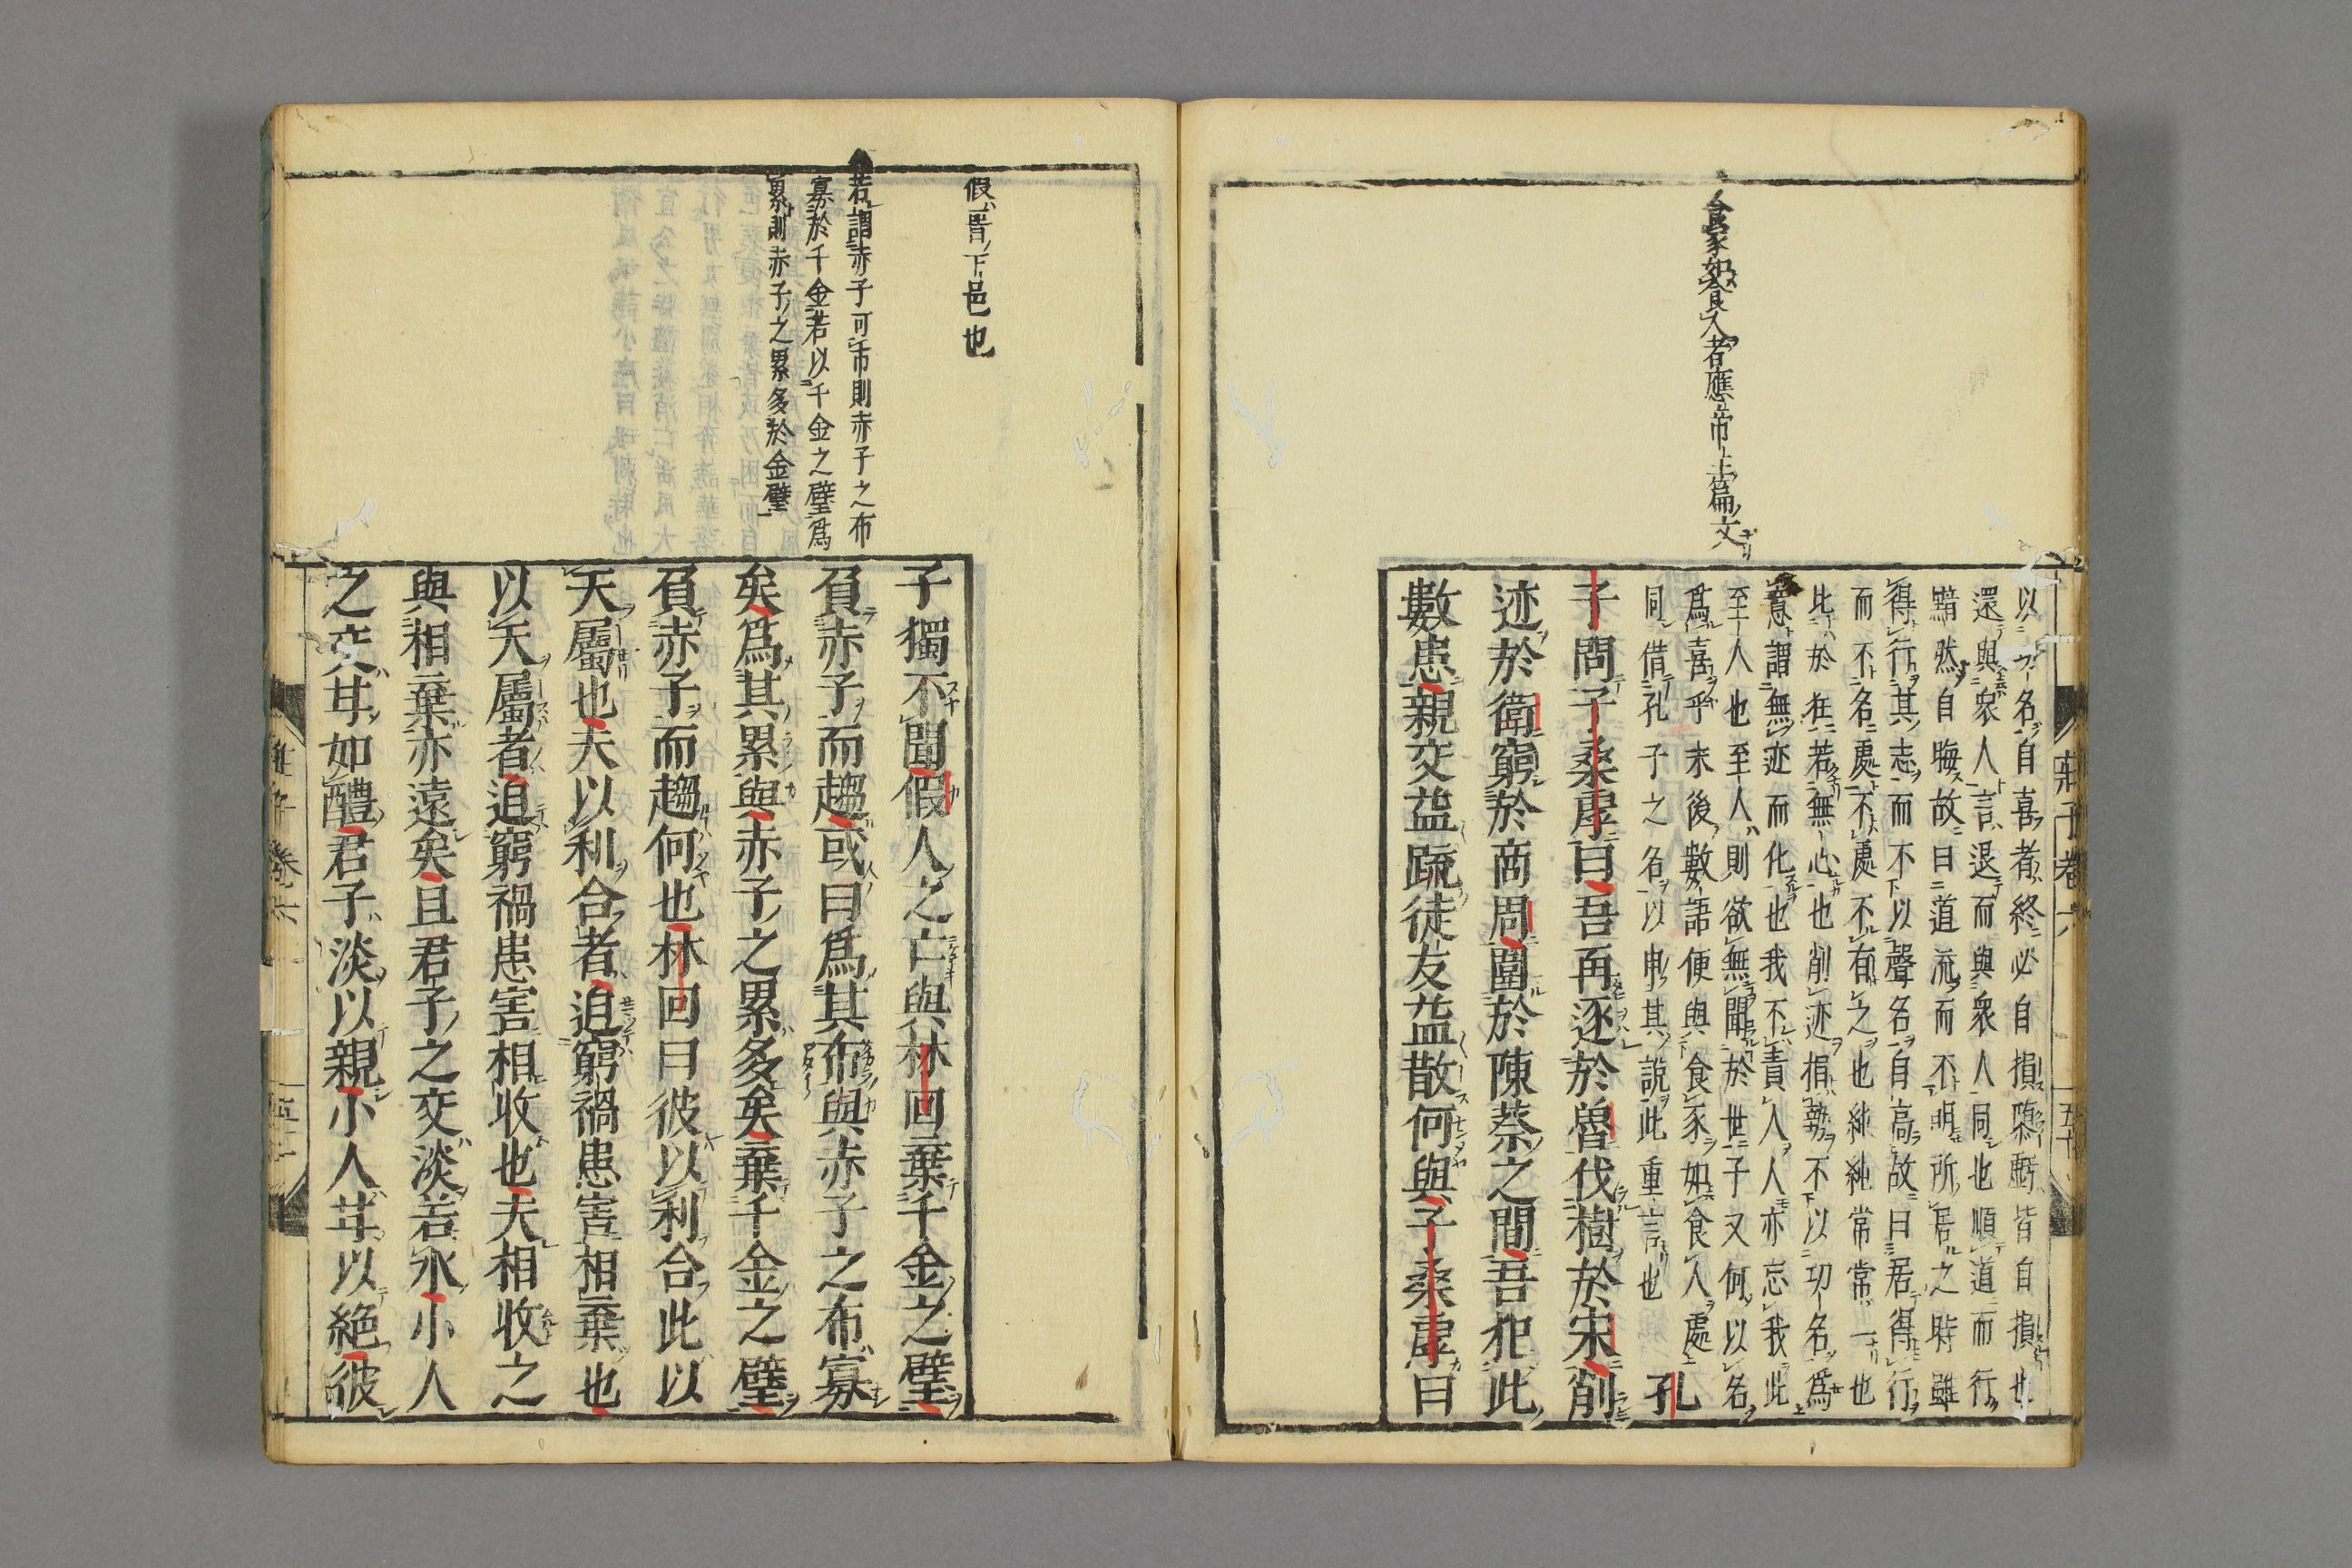 食豕如食人者應帝王篇文
莊子卷六
五十
以功名自喜者終必自損隳虧皆自損也
還與衆人言退而與衆人同也順道而行
黯然自晦故曰道流而不明所居之時雖
得行其志而不以聲名自高故曰居得行
而不名處不處不有之也純純常常一也
比於狂若無心也削迹捐勢不以功名爲
意謂無迹而化也我不責人人亦忘我此
至人也至人則欲無聞於世子又何以名
爲喜乎末後數語便與食豕如食人處
同借孔子之名以申其說此重言也 孔
子問子桑雽曰吾再逐於魯伐樹於宋削
迹於衛窮於商周圍於陳蔡之間吾犯此
數患親交益疏徒友益散何與子桑雽曰
假晉下邑也
若謂赤子可市則赤子之布
寡於千金若以千金之璧爲
累則赤子之累多於金璧
子獨不聞假人之亡與林回棄千金之璧
負赤子而趨或曰爲其布與赤子之布寡
矣爲其累與赤子之累多矣棄千金之璧
負赤子而趨何也林回曰彼以利合此以
天屬也夫以利合者迫窮禍患害相棄也
以天屬者迫窮禍患害相收也夫相收之
與相棄亦遠矣且君子之交淡若水小人
之交甘如醴君子淡以親小人甘以絕彼